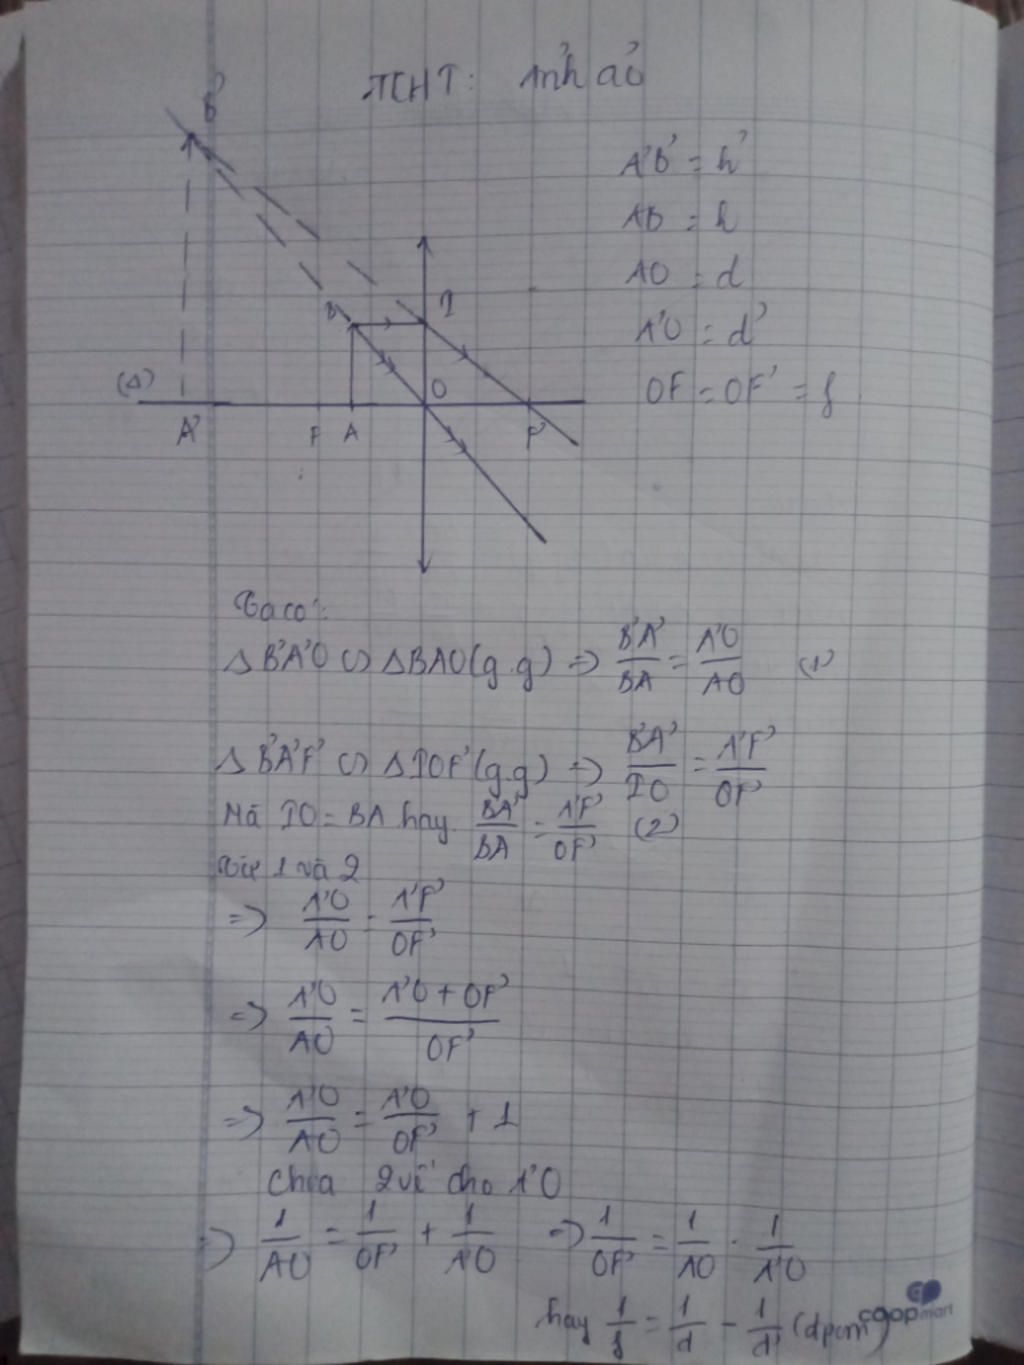 TKHT: Ảnh ảo
B'
A'B' = h'
AB = h
AO = d
A'O = d'
OF = OF' = f
B I
(Δ) O
A' F A F'
Ta có:
Δ B'A'O ∽ ΔBAO (g.g) => B'A'/BA = A'O/AO (1)
Δ B'A'F' ∽ ΔIOF' (g.g) => B'A'/IO = A'F'/OF'
Mà IO = BA hay B'A'/BA = A'F'/OF' (2)
Từ 1 và 2
=> A'O/AO = A'F'/OF'
=> A'O/AO = (A'O + OF')/OF'
=> A'O/AO = A'O/OF' + 1
Chia 2 vế cho A'O
=> 1/AO = 1/OF' + 1/A'O => 1/OF' = 1/AO - 1/A'O
hay 1/f = 1/d - 1/d' (đpcm)
coopmart